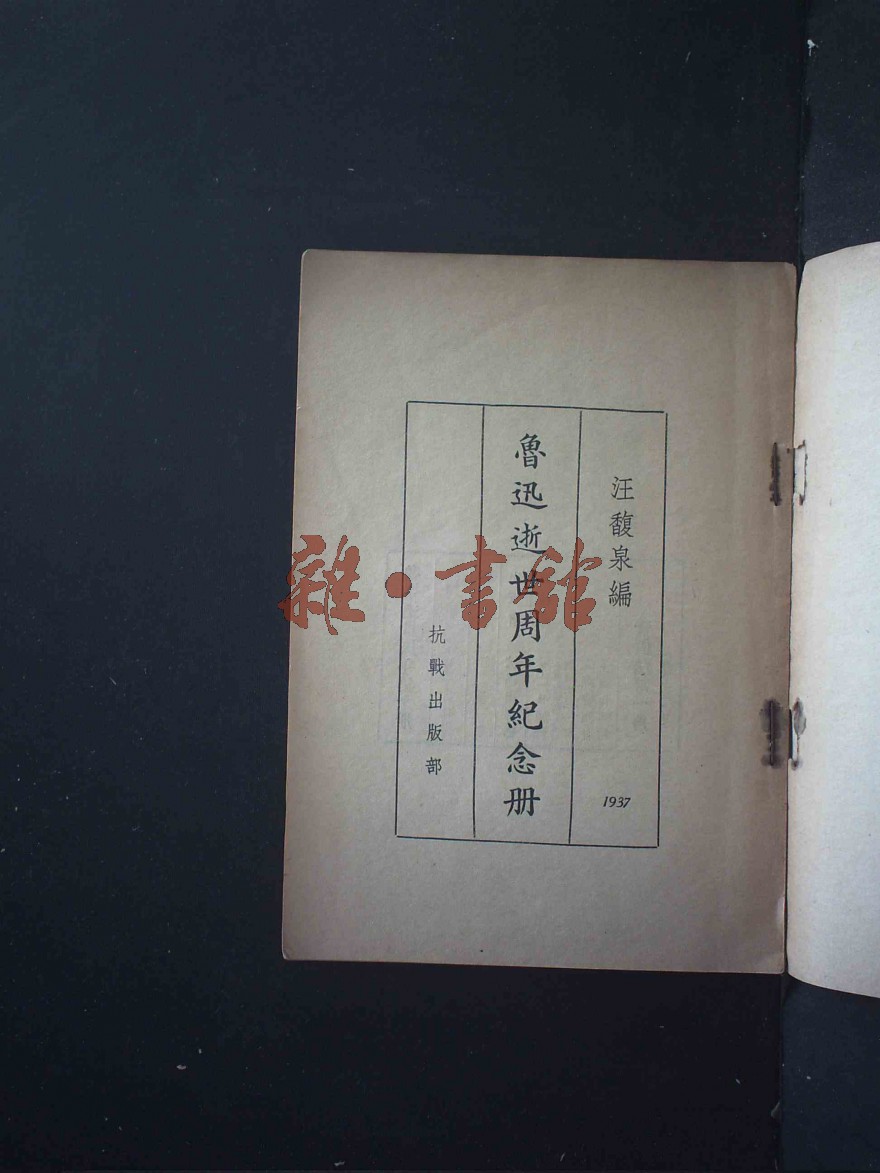 汪馥泉編
1937
魯迅逝世周年紀念册
抗戰出版部
雜·書館